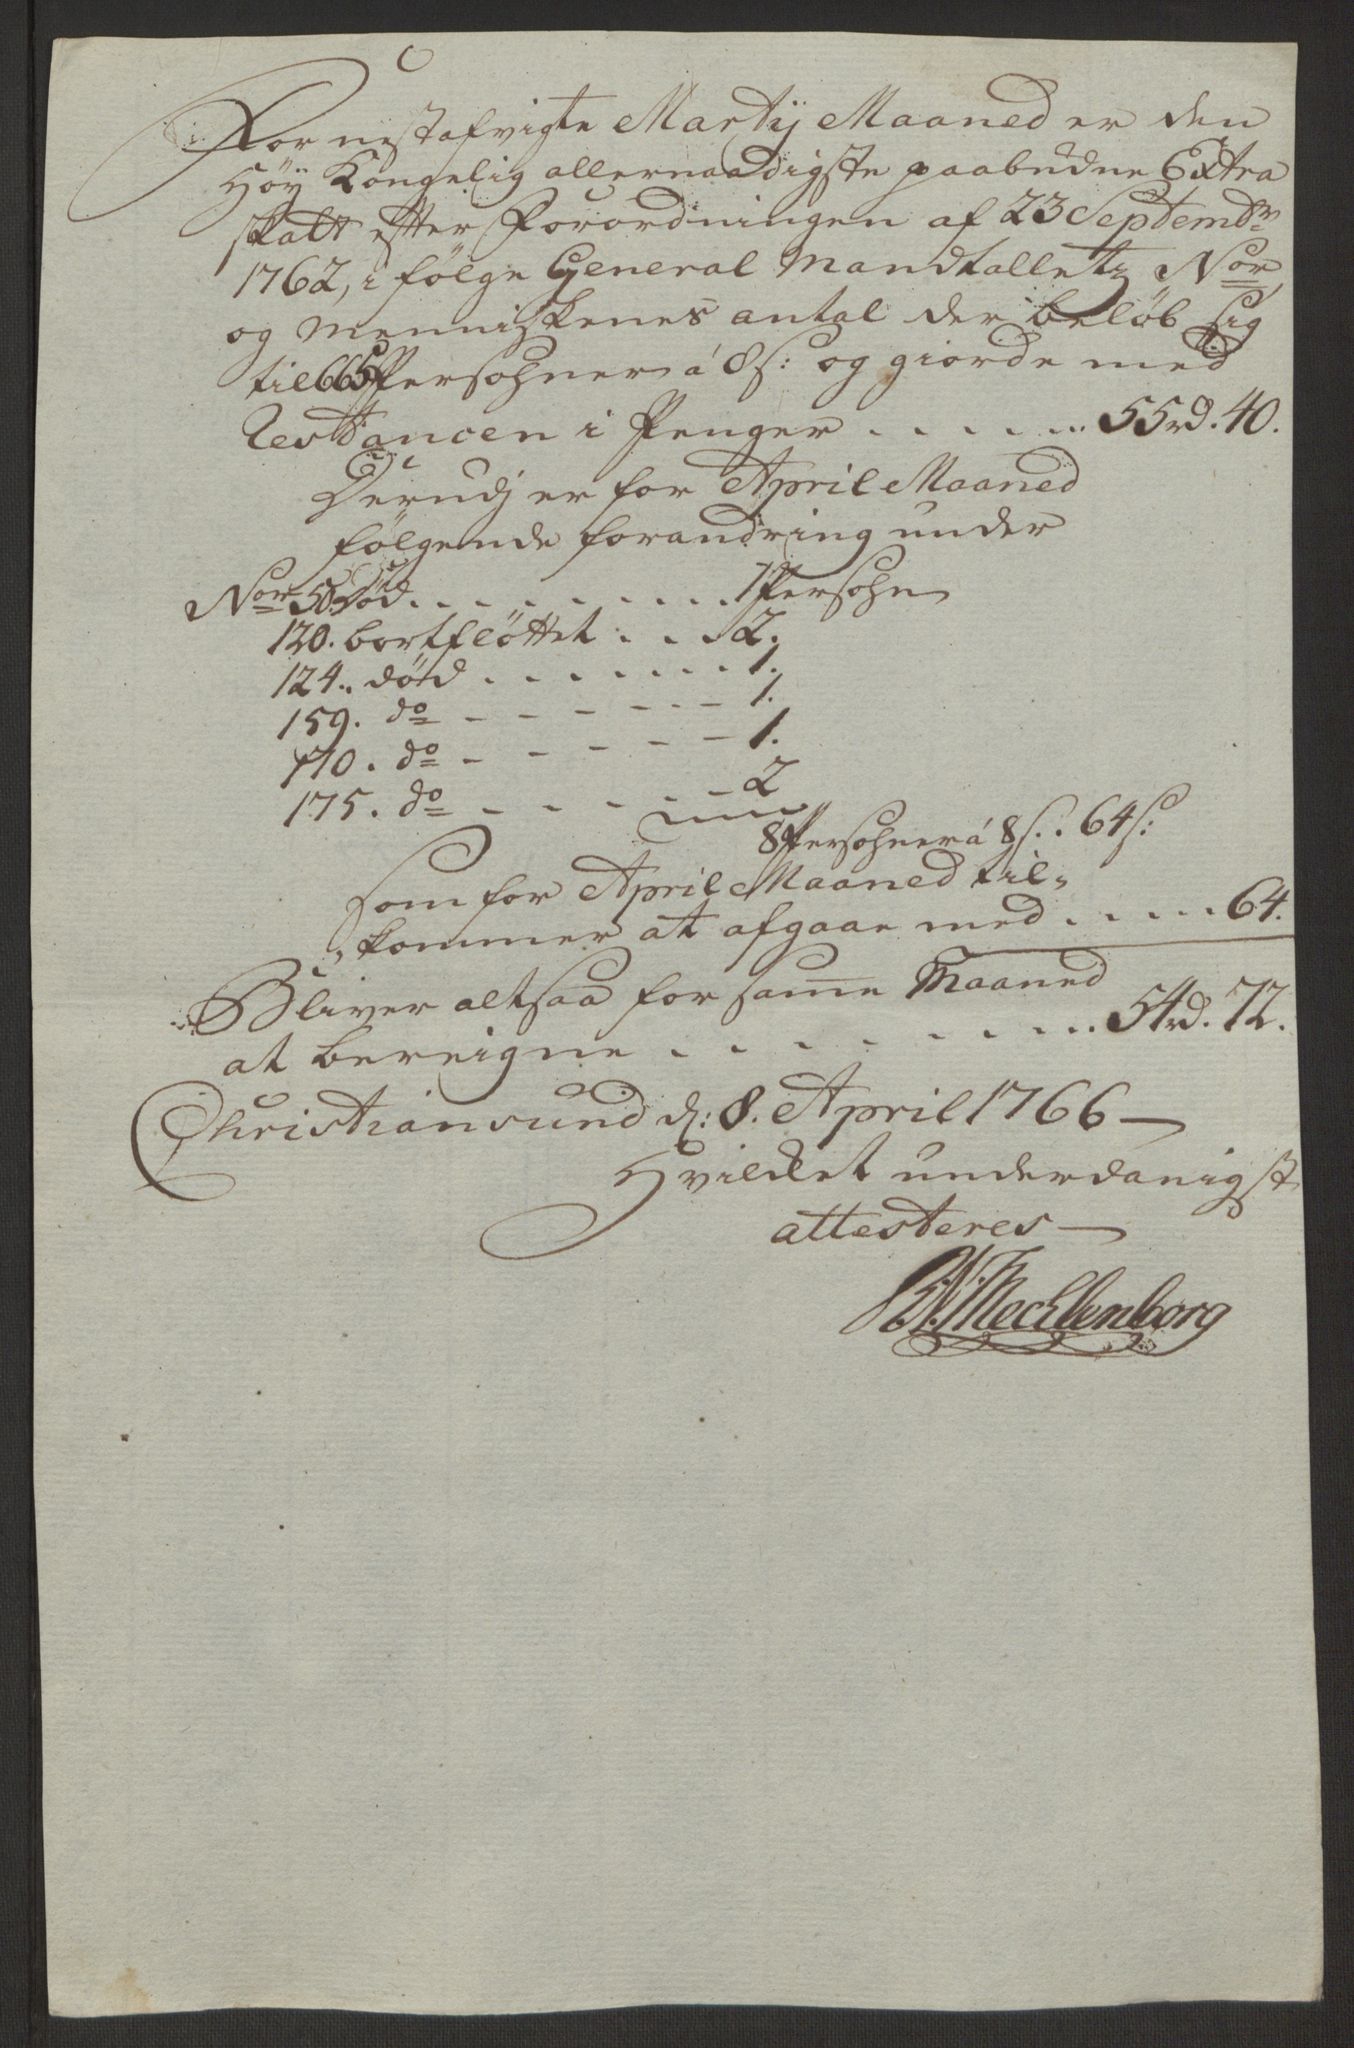 For nestafvigte Martij Maaned er den
Høy Kongelig allernaadigste paabudne Extra
skatt efter Forordningen af 23 Septembr
1762, i følge General Mandtallets Nor
og Menniskenes antal der beløb sig
til 665 Persohner á 8 s: og giorde med
Restancen i Penger . . . . . . 55 rd. 40.
Derudj er for April Maaned
følgende forandring under
Nor 58. død . . . . . . . . . 1 Persohn
120. bortfløttet . . . 2.
124. død . . . . . . . 1.
159. do - - - - - - 1.
170. do - - - - - 1.
175. do - - - - - 2
8 Persohner á 8 s. . 64 s:
som for April Maaned til-
kommer at afgaae med . . . . . 64.
Bliver altsaa for samme Maaned
at bereigne . . . . . . . . . 54 rd. 72.
Christiansund d: 8. April 1766 —
Hvilket underdanigst
attesteres —
Mechlenborg